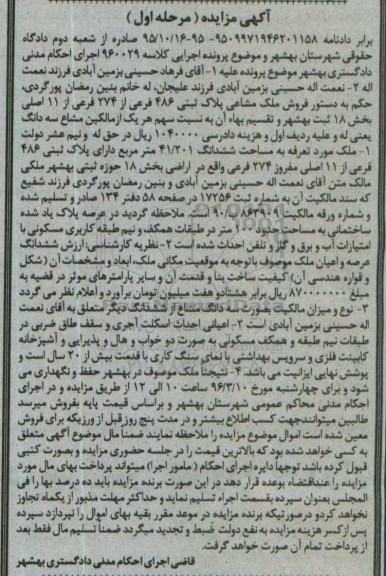 آگهی مزایده (مرحله اول)
برابر دادنامه ۹۵۰۹۹۷۱۹۴۶۲۰۱۱۵۸-۹۵/۱۰/۱۶-۹۵ صادره از شعبه دوم دادگاه
حقوقی شهرستان بهشهر و موضوع پرونده اجرایی کلاسه ۹۶۰۰۲۹ اجرای احکام مدنی
دادگستری بهشهر موضوع پرونده علیه ۱- آقای فرهاد حسینی بزمین آبادی فرزند نعمت
اله ۲- نعمت اله حسینی بزمین آبادی فرزند علیجان، له خانم بنین رمضان پورگردی،
حکم به دستور فروش ملک مشاعی پلاک ثبتی ۴۸۶ فرعی از ۲۷۴ فرعی از ۱۱ اصلی
بخش ۱۸ ثبت بهشهر و تقسیم بهاء آن به نسبت سهم هر یک ازمالکین مشاع سه دانگ
یعنی له و علیه ردیف اول و هزینه دادرسی ۱۰۴۰۰۰۰ ریال در حق له و نیم عشر دولت
۱- ملک مورد تعرفه به مساحت ششدانگ ۴۱/۲۰۱ متر مربع دارای پلاک ثبتی ۴۸۶
فرعی از ۱۱ اصلی مفروز ۲۷۴ فرعی واقع در اراضی بخش ۱۸ حوزه ثبتی بهشهر ملکی
مالک متن آقای نعمت اله حسینی بزمین آبادی و بنین رمضان پورگردی فرزند شفیع
که سند مالکیت آن به شماره ثبت ۱۷۲۵۶ در صفحه ۵۸ دفتر ۱۳۴ صادر و تسلیم شده
و شماره ورقه مالکیت ۸۶۳۹۰۹ ۹۰/ است. ملاحظه گردید در عرصه پلاک یاد شده
ساختمانی به مساحت حدود ۱۰۰ متر در طبقات همکف و نیم طبقه کاربری مسکونی با
امتیازات آب و برق و گاز و تلفن احداث شده است ۲- نظریه کارشناسی: ارزش ششدانگ
عرصه و اعیان ملک موصوف باتوجه به موقعیت مکانی ملک، ابعاد و مشخصات آن (شکل
و قواره هندسی آن) کیفیت ساخت بنا و قدمت آن و سایر پارامترهای موثر در قضیه به
مبلغ ۸۷۰۰۰۰۰۰۰ ریال برابر هشتاد و هفت میلیون تومان برآورد و اعلام نظر می گردد
۳- نوع و میزان مالکیت بصورت سه دانگ مشاع از ششدانگ دیگر متعلق به آقای نعمت
اله حسینی بزمین آبادی است ۲- اعیانی احداث اسکلت آجری و سقف طاق ضربی در
طبقات نیم طبقه و همکف مسکونی به صورت دو خواب و هال و پذیرایی و آشپزخانه
کابینت فلزی و سرویس بهداشتی با نمای سنگ کاری با قدمت بیش از ۲۰ سال است و
پوشش نهایی ایزانیت می باشد. ۴- نتیجتا ملک موصوف در بهشهر حفظ و نگهداری می
شود و برای چهارشنبه مورخ ۹۶/۳/۱۰ ساعت ۱۰ الی ۱۲ از طریق مزایده و در اجرای
احکام مدنی محاکم عمومی شهرستان بهشهر و براساس قیمت پایه بفروش میرسد
طالبین میتوانندجهت کسب اطلاع بیشتر و در مدت پنج روز قبل از ورزیکه برای فروش
معین شده است اموال موضوع مزایده را ملاحظه نمایند ضمنا مال موضوع آگهی متعلق
به کسی خواهد شده بود که بالاترین قیمت را در جلسه حضوری مزایده و بصورت کتبی
قبول کرده باشد توجها دایره اجرای احکام (مامور اجرا) میتواند پرداخت بهای مال مورد
مزایده را عندالاقتضاء بوعده قرار دهد در این صورت برنده مزایده باید ده درصد بها را فی
المجلس بعنوان سپرده بقسمت اجراء تسلیم نماید و حداکثر مهلت مذبور از یکماه تجاوز
نخواهد کردو درصورتیکه برنده مزایده در موعد مقرر بقیه بهای اموال را نپردازد سپرده
پس از کسر هزینه مزایده به نفع دولت ضبط و تجدید میگردد ضمنا تسلیم مال فقط بعد
از پرداخت تمام آن صورت خواهد گرفت.
قاضی اجرای احکام مدنی دادگستری بهشهر